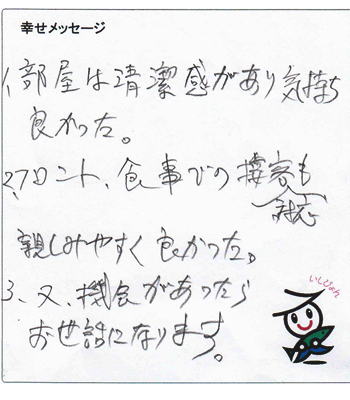 幸せメッセージ
1、部屋は清潔感があり気持ち
良かった。
2、フロント、食事での接客も
対応
親しみやすく良かった。
3、又、機会があったら
お世話になります。
いしぴょん